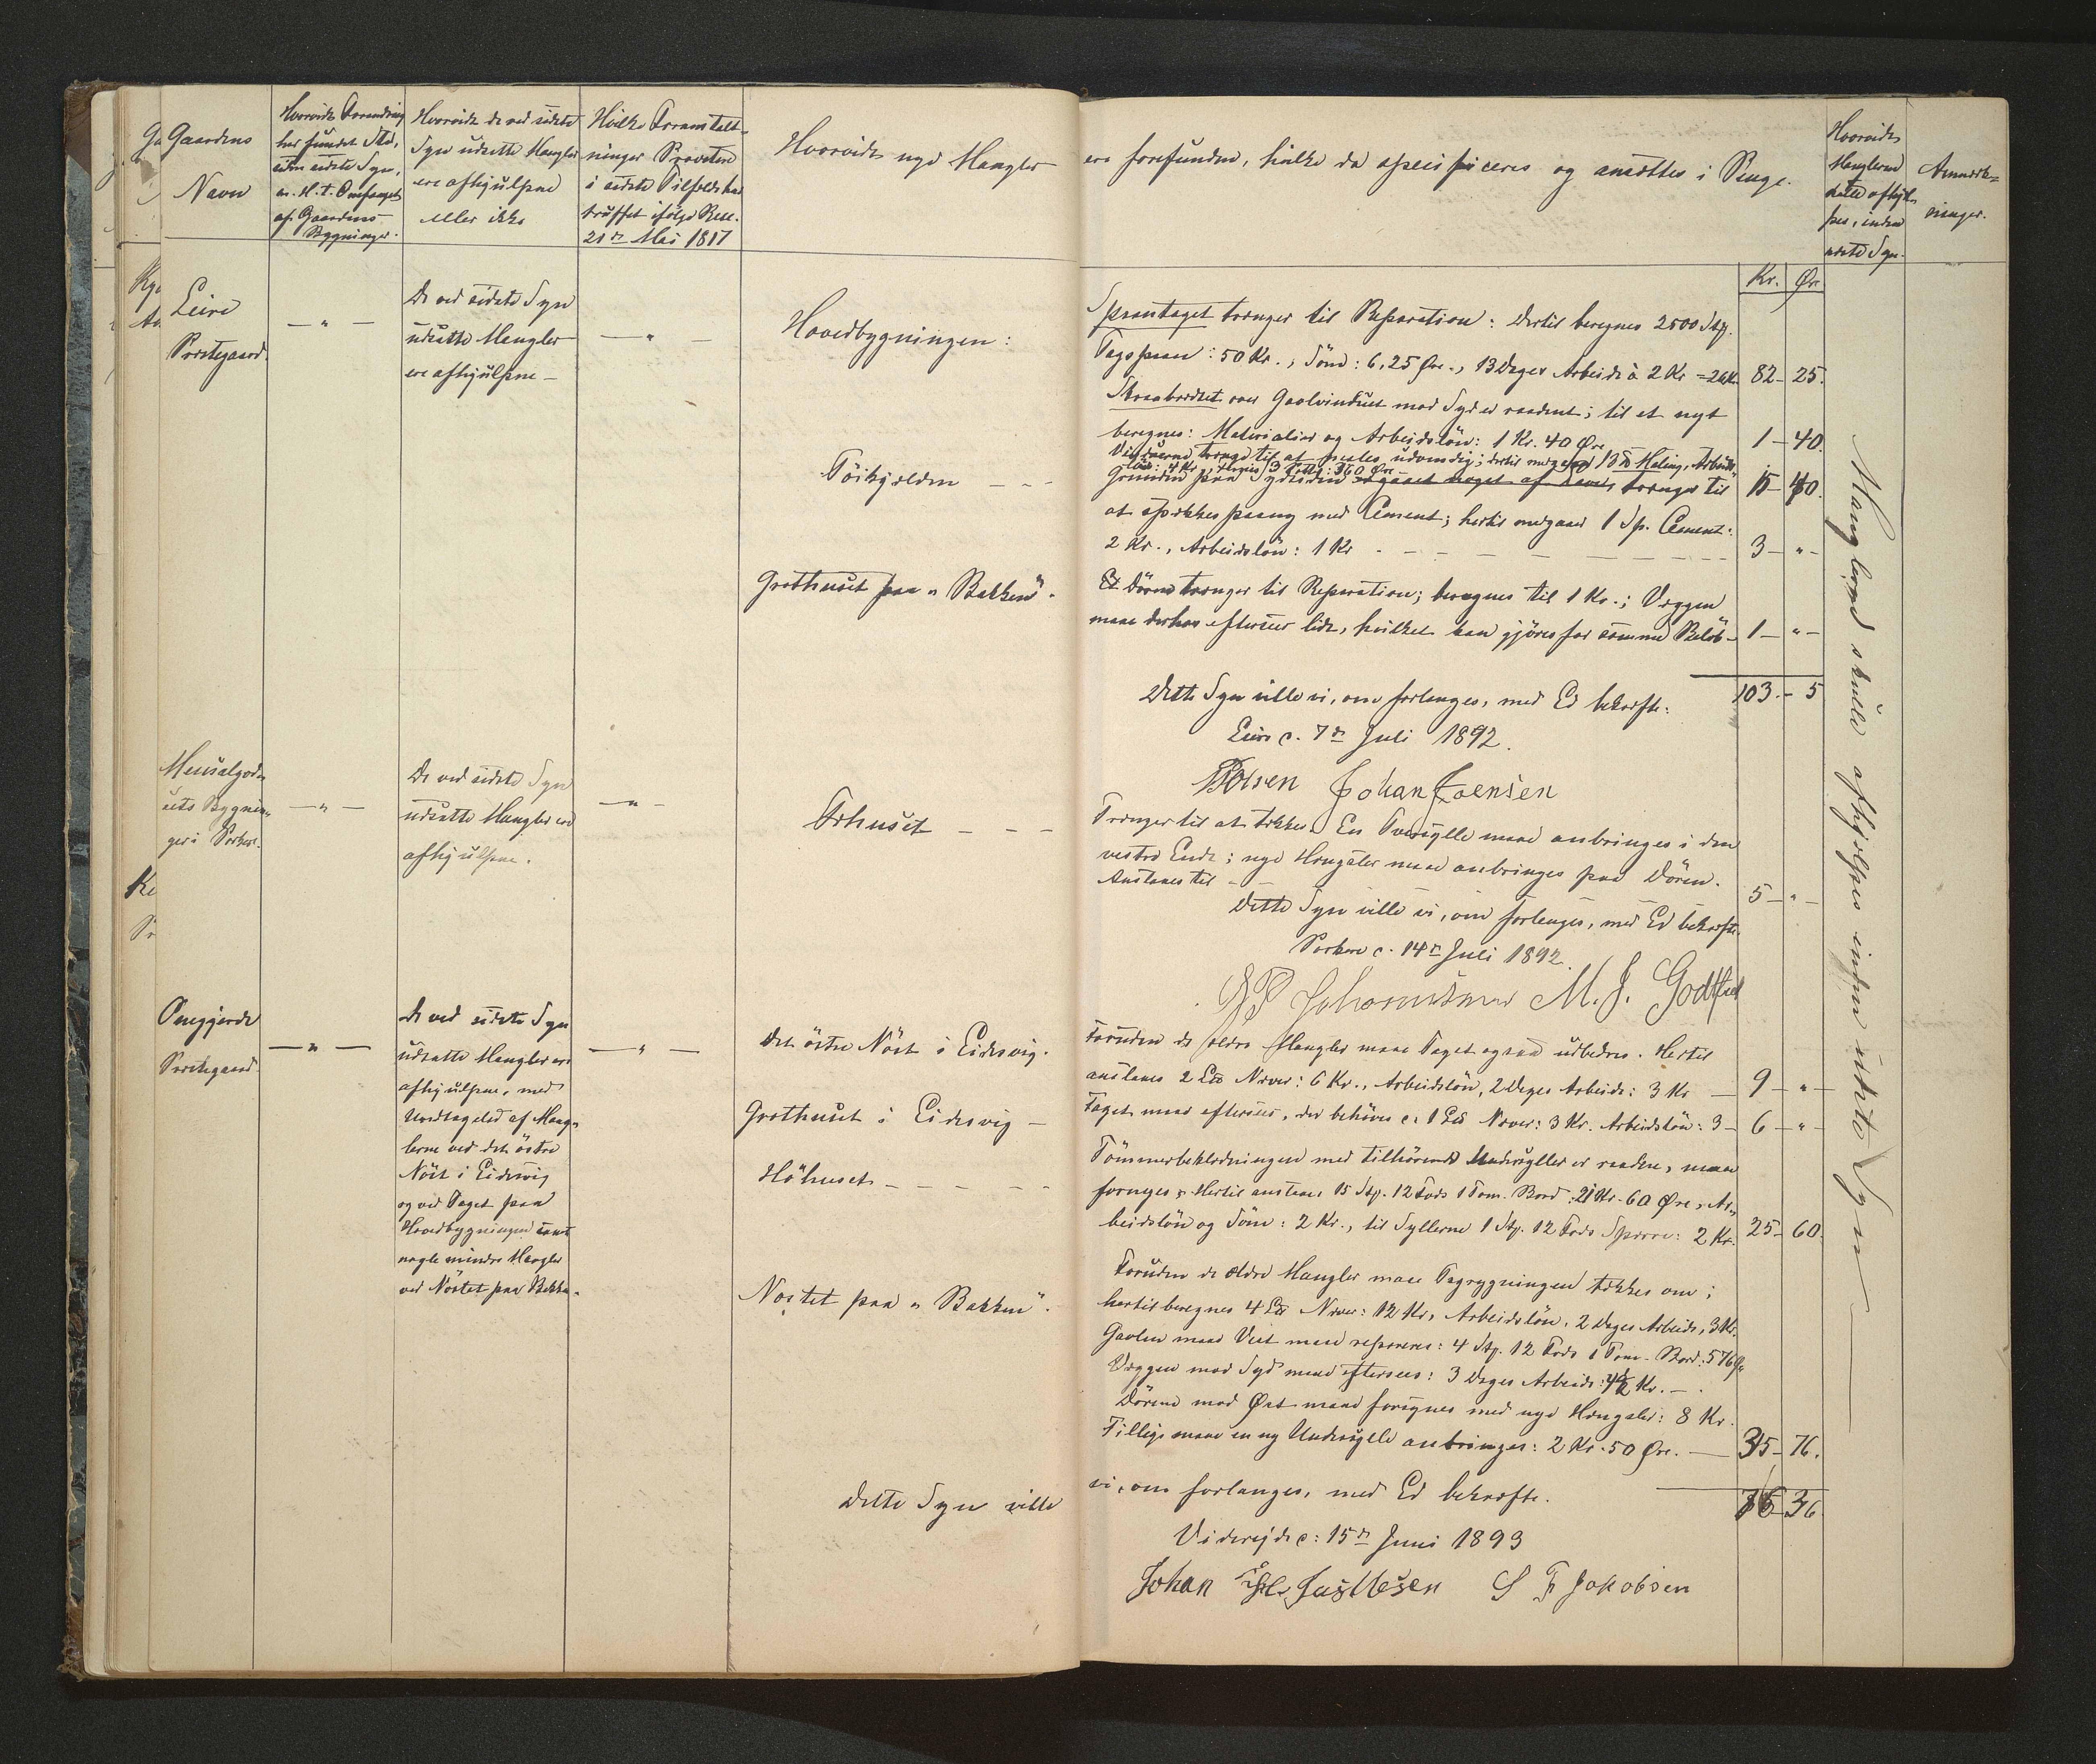 Gaardens
Navn
Hvorvidt Forandring
har fundet Sted,
siden sidste Syn,
m. H. t. Omfanget
af Gaardens
Bygninger.
Hvorvidt de ved sidste
Syn udsatte Mangler
ere afhjulpne
eller ikke
Hvilke Foranstalt-
ninger Provsten
i sidste Tilfælde har
truffet ifølge Resc.
21de Mai 1817
Hvorvidt nye Mangler ere forefundne, hvilke da specificeres og ansættes i Penge.
Hvorvidt
Manglerne
ville afhjel-
pes, inden
næste Syn.
Anmærk-
ninger.
Kr. Øre
Leire
Præstegaard.
— " —
De ved sidste Syn
udsatte Mangler
ere afhjulpne —
— " —
Hovedbygningen:
Spaantaget trænger til Reparation: dertil beregnes 2500 Stk.
Tagspaan: 50 Kr., Søm: 6,25 Øre, 13 Dages Arbeide à 2 Kr = 26 Kr. 82 - 25.
Skraabrædtet over Gavlvinduet mod Syd er raadent; til et nyt
beregnes: Materialier og Arbeidsløn: 1 Kr. 40 Øre 1 - 40.
Vinduerne trænge til at males udvendig; dertil medgaaer 13 ℔ Maling, Arbeids-
løn: 4 Kr., Fernis 3 Potter: 360 Øre
Töikjelderen - - -
Grunden paa Sydsiden trænger til
at spækkes paany med Cement; hertil medgaaer 1 Sp. Cement:
2 Kr., Arbeidsløn: 1 Kr - - - 3 - " -
Grothuset paa "Bakken".
Et Dørene trænger til Reparation; beregnes til 1 Kr.; Væggen
maa derhos eftersees lidt, hvilket kan gjøres for samme Beløb - 1 - " -
103. - 5
Dette Syn ville vi, om forlanges, med Ed bekræfte.
Leire d. 7de Juli 1892.
Poulsen Johan Joensen
Mensalgod-
sets Bygnin-
ger i Porkere.
— " —
De ved sidste Syn
udsatte Mangler ere
afhjulpne.
— " —
Tørhuset - - -
Trænger til at tækkes. En Tværsylle maa anbringes i den
vestre Ende; nye Hængsler maa anbringes paa Døren.
Anslaaes til - 5 - " -
Dette Syn ville vi, om forlanges, med Ed bekræfte.
Porkere d. 14de Juli 1892.
Johannesen M. J. Godtfred
Onegjerde
Præstegaard.
— " —
De ved sidste Syn
udsatte Mangler ere
afhjulpne, med
Undtagelse af Mang-
lerne ved det östre
Nöst i Eidesvig
og ved Taget paa
Hovedbygningen samt
nogle mindre Mangler
ved Nöstet paa Bakken.
— " —
Det östre Nöst i Eidesvig.
Foruden de ældre Mangler maa Taget ogsaa udbedres. Hertil
anslaaes 2 L℔ Næver: 6 Kr., Arbeidsløn, 2 Dages Arbeide: 3 Kr — 9 - " —
Grothuset i Eidesvig —
Taget maa eftersees, der behøves c. 1 L℔ Næver: 3 Kr. Arbeidsløn: 3 - 6 - " -
Höhuset - - - - -
Tömmerbeklædningen med tilhörende Undersyller er raadne, maa
fornyes; Hertil anslaaes 15 Stk. 12 Fods 1 Tom. Bord: 21 Kr. 60 Øre, Ar-
beidsløn og Søm: 2 Kr., til Syllerne 1 Stk. 12 Fods Sparre: 2 Kr. 25 - 60.
Nöstet paa "Bakken".
Foruden de ældre Mangler maa Tagrygningen tækkes om;
hertil beregnes 4 L℔ Næver: 12 Kr, Arbeidsløn, 2 Dages Arbeide, 3 Kr.
Gavlen mod Vest maa repareres: 4 Stk. 12 Fods 1 Tom. Bord: 576 Øre
Væggen mod Syd maa eftersees: 3 Dages Arbeide: 4½ Kr. —
Dörene mod Øst maa fornyes med nye Hængsler: 8 Kr.
Tillige maa en ny Undersylle anbringes: 2 Kr. 50 Øre. — 35 - 76.
Dette Syn ville vi, om forlanges, med Ed bekræfte.
Videreide d: 15de Juni 1893
Johan Justesen S F Jakobsen
Manglerne skulle afhjelpes inden næste Syn —